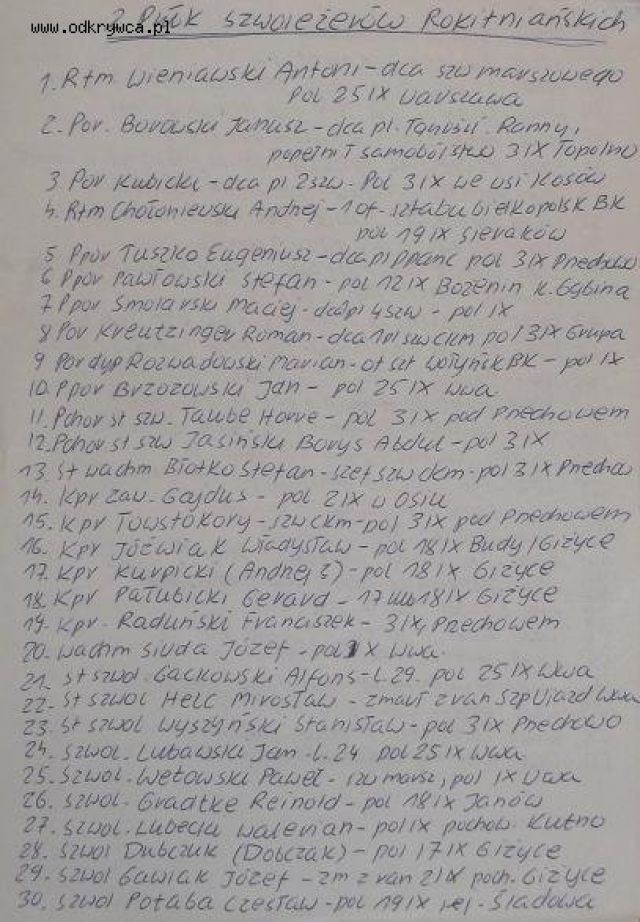 www.odkrywca.pl
2 Pułk szwoleżerów Rokitniańskich
1. Rtm. Wieniawski Antoni - dca szw marszowego
pol 25 IX Warszawa
2. Por. Borowski Janusz - dca pl. Ranny,
popełnił samobójstwo 3 IX Topolno
3 Por Kubicki - dca pl 2 szw - Pol 3 IX we wsi Kosów
4. Rtm Chołoniewski Andrzej - 1 of. sztabu Wielkopolsk BK
pol 19 IX Sieraków
5 Ppor Tuszko Eugeniusz - dca pl ppanc pol 3 IX Pnechowo
6 Ppor Pawłowski Stefan - pol 12 IX Bozenin k. Gąbina
7 Ppor Smolarski Maciej - dca pl 4 szw - pol IX
8 Por Kreutzinger Roman - dca 1 pl szw ckm pol 3 IX Grupa
9 Por dyp Rozwadowski Marian - of szt Wołyńsk BK - pol IX
10. Ppor Brzozowski Jan - pol 25 IX Wwa
11. Pchor st szw. Taube Horre - pol 3 IX pod Pnechowem
12. Pchor st szw Jasiński Borys Abdul - pol 3 IX
13. St wachm Błotko Stefan - szef szw ckm - pol 3 IX Pnechow
14. Kpr zaw. Gajdus - pol 2 IX w Osiu
15. Kpr Towstokory - szw ckm - pol 3 IX pod Pnechowem
16. Kpr Jóźwiak Władysław - pol 18 IX Budy / Giżyce
17. Kpr Kurpicki (Andrzej ?) - pol 18 IX Giżyce
18. Kpr Pałubicki Gerard - 17 lub 18 IX Giżyce
19. Kpr. Raduński Franciszek - 3 IX, Pnechowem
20. Wachm Siuda Józef - pol IX Wwa
21. St szwol. Gackowski Alfons - l. 29. pol 25 IX Wwa
22. St szwol Helc Mirosław - zmarł z ran Szp Ujazd Wwa
23. St szwol Wyszyński Stanisław - pol 3 IX Pnechowo
24. Szwol. Lubawski Jan - l. 24 pol 25 IX Wwa
25. Szwol. Wetowski Paweł - szw marsz, pol IX Wwa
26. Szwol. Gradtke Reinold - pol 18 IX Janów
27. Szwol. Lubecki Walerian - pol IX pochow. Kutno
28. Szwol Dubczuk (Dobczak) - pol 17 IX Giżyce
29. Szwol Gawiak Józef - zm z ran 21 IX poch. Giżyce
30. Szwol Potaba Czesław - pol 19 IX rej. Śladowa